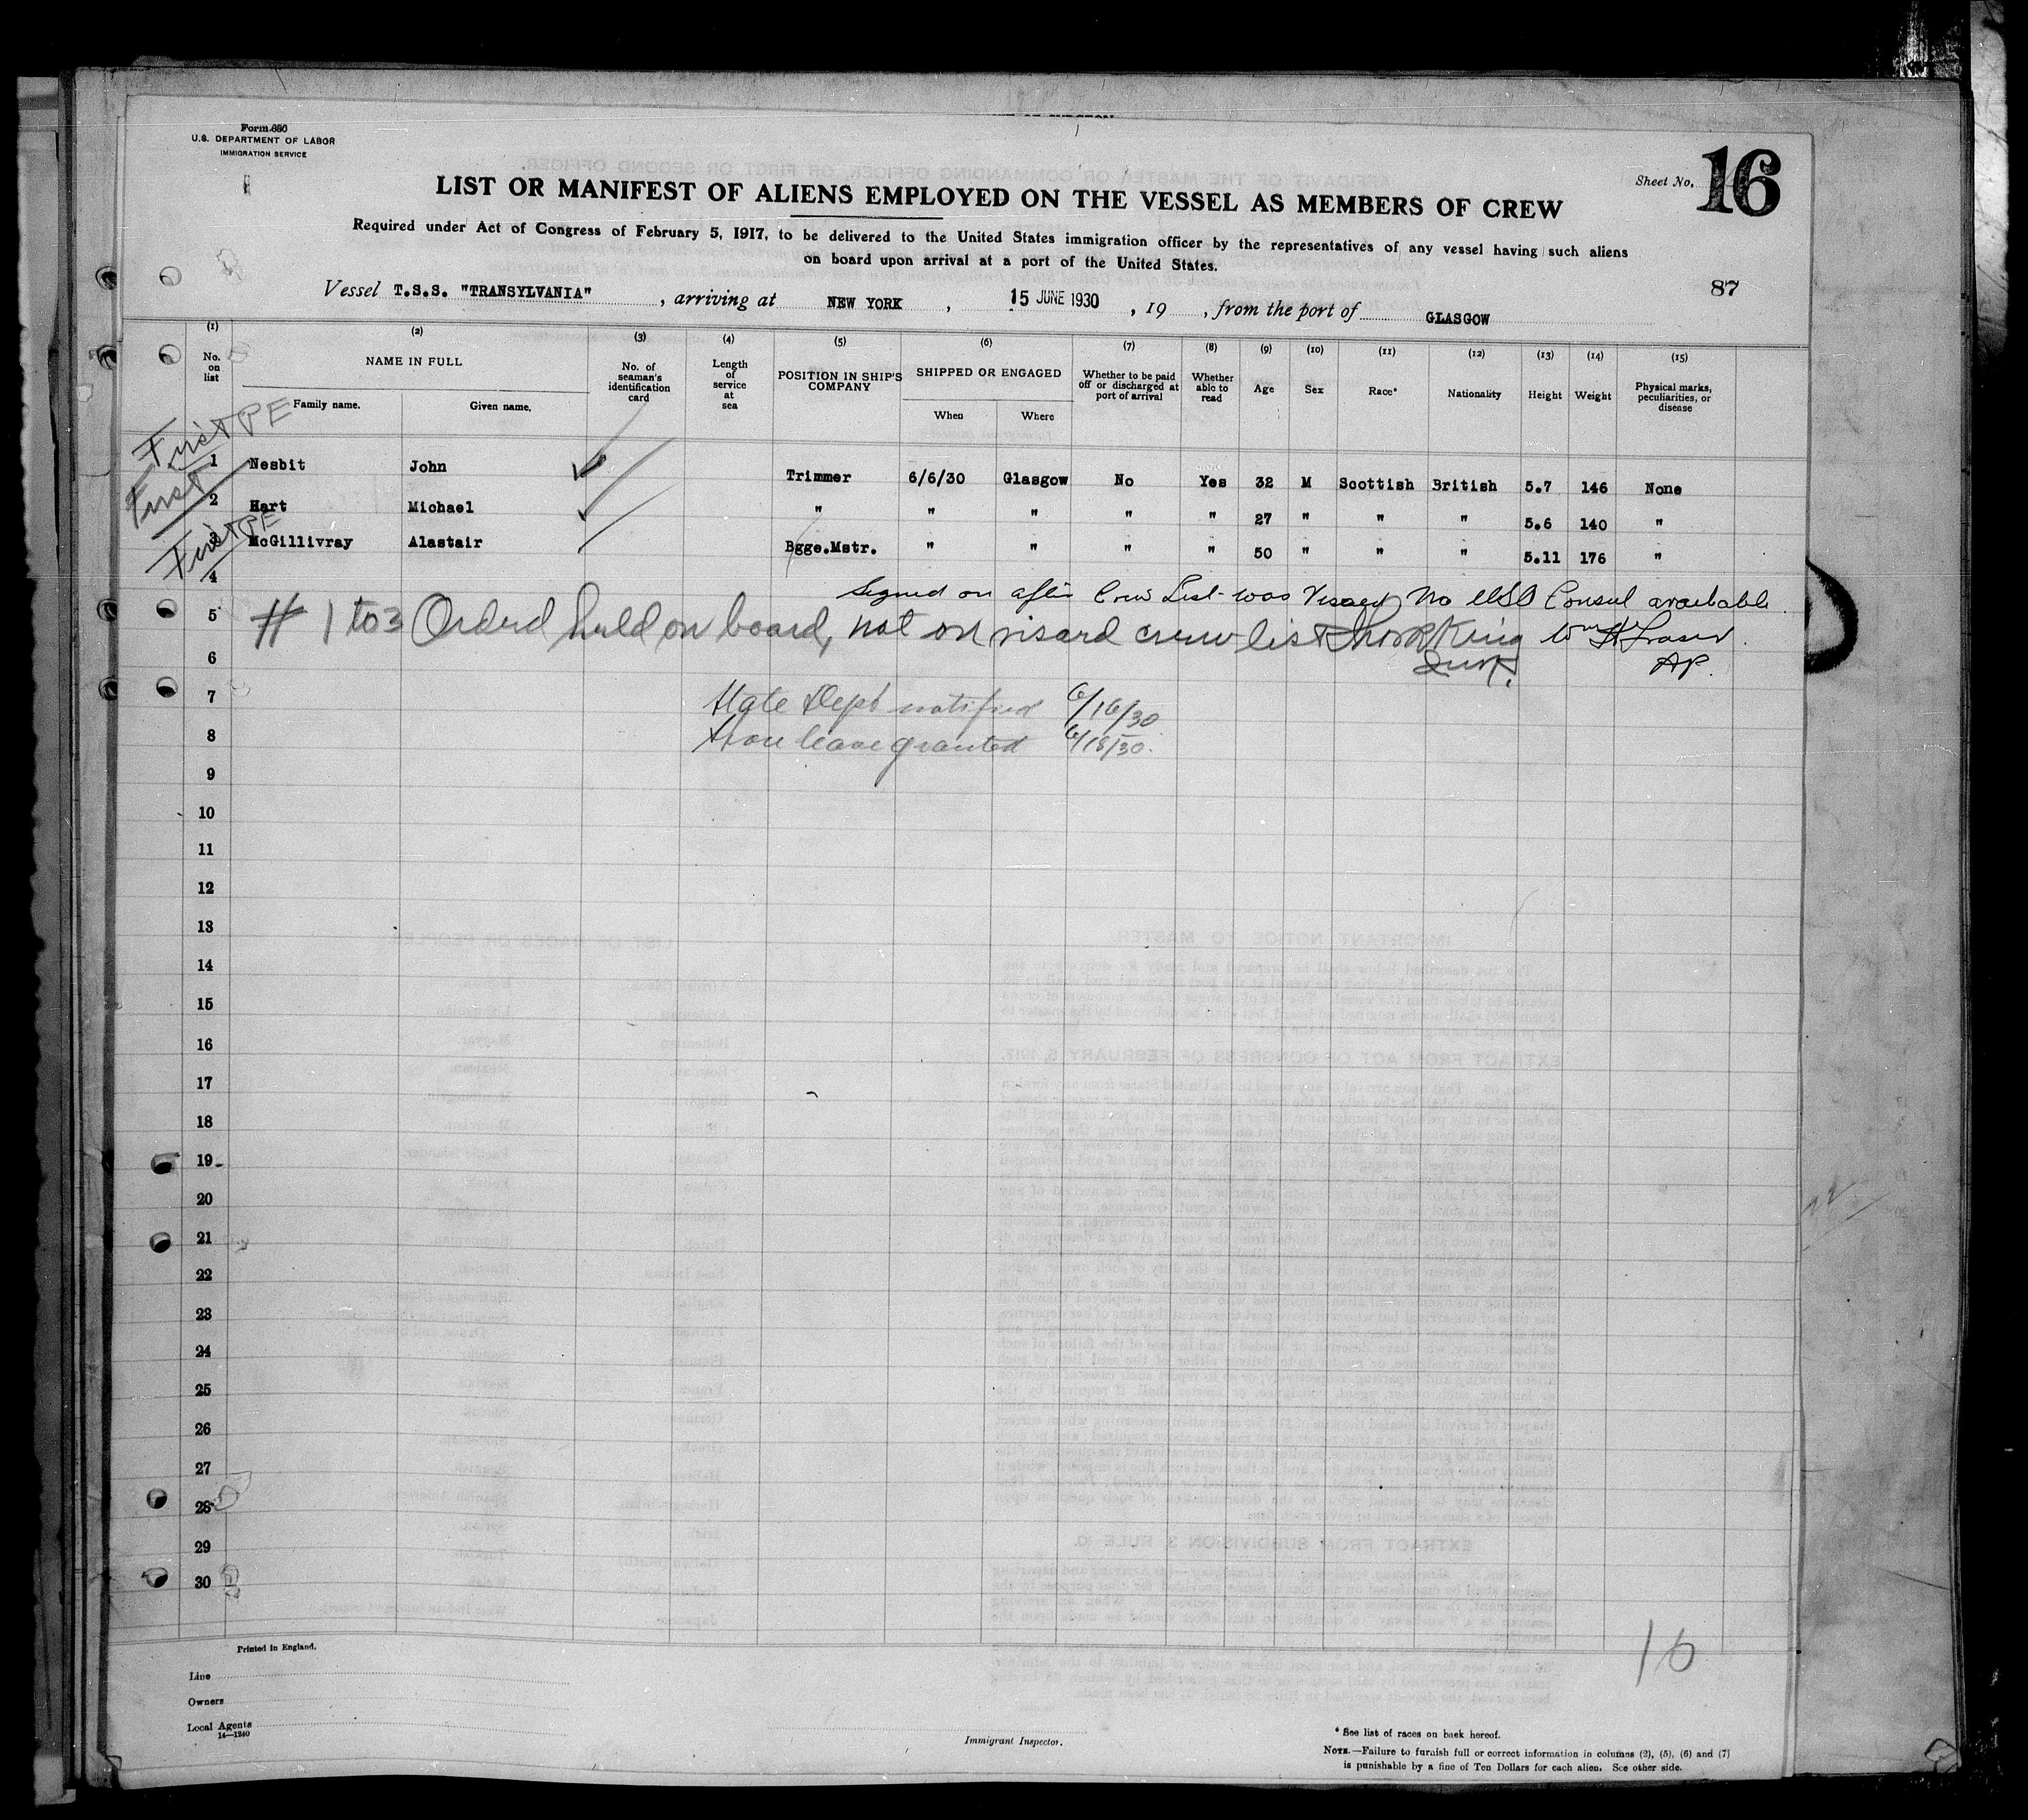 Form 680
U.S. DEPARTMENT OF LABOR
IMMIGRATION SERVICE
Sheet No. 16
LIST OR MANIFEST OF ALIENS EMPLOYED ON THE VESSEL AS MEMBERS OF CREW
Required under Act of Congress of February 5, 1917, to be delivered to the United States immigration officer by the representatives of any vessel having such aliens
on board upon arrival at a port of the United States.
87
Vessel T.S.S. "TRANSYLVANIA", arriving at NEW YORK, 15 JUNE 1930, 19, from the port of GLASGOW
(1) (2) (3) (4) (5) (6) (7) (8) (9) (10) (11) (12) (13) (14) (15)
No. on list NAME IN FULL No. of seaman's identification card Length of service at sea POSITION IN SHIP'S COMPANY SHIPPED OR ENGAGED Whether to be paid off or discharged at port of arrival Whether able to read Age Sex Race* Nationality Height Weight Physical marks, peculiarities, or disease
Family name. Given name. When Where
First PE
1 Nesbit John Trimmer 6/6/30 Glasgow No Yes 32 M Scottish British 5.7 146 None
First
2 Hart Michael " " " " " 27 " " " 5.6 140 "
First PE
3 McGillivray Alastair Bgge.Mstr. " " " " 50 " " " 5.11 176 "
4
Signed on after Crew List was Visaed No USA Consul available.
5 # 1 to 3 Ordered held on board, not on visaed crew list King Wm H Fraser
6 Insp. AP.
7 State Dept notified 6/16/30
8 Shore leave granted 6/18/30.
9
10
11
12
13
14
15
16
17
18
19
20
21
22
23
24
25
26
27
28
29
30
16
Printed in England.
Line
Owners
Local Agents
14—1240
Immigrant Inspector.
* See list of races on back hereof.
NOTE.—Failure to furnish full or correct information in columns (2), (5), (6) and (7)
is punishable by a fine of Ten Dollars for each alien. See other side.